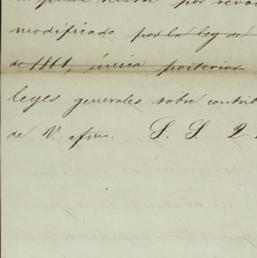 modificado por la ley de
de 1861, única posterior
leyes generales sobre contrib
de V. afmo. S. S. 2.